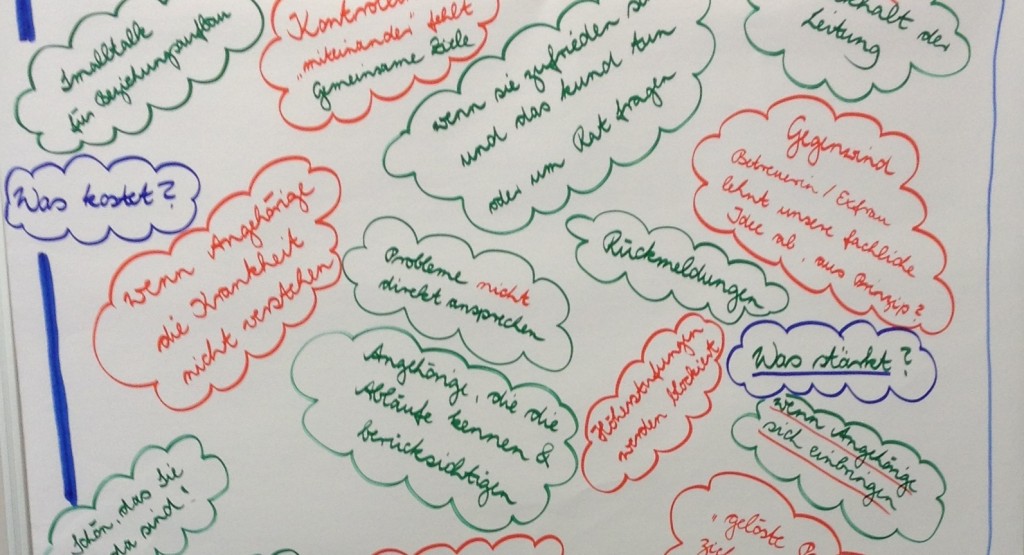 Smalltalk
für Beziehungsaufbau
"miteinander" fehlt
gemeinsame Ziele
wenn sie zufrieden
und das kund tun
oder um Rat fragen
der
Leitung
Was kostet?
wenn Angehörige
die Krankheit
nicht verstehen
Probleme nicht
direkt ansprechen
Rückmeldungen
Gegenwind
Betreuerin / Exfrau
lehnt unsere fachliche
Idee ab, aus Prinzip?
Angehörige, die die
Abläufe kennen &
berücksichtigen
Höherstufungen
werden blockiert
Was stärkt?
wenn Angehörige
sich einbringen
Schön, das Sie
da sind!
"gelöste